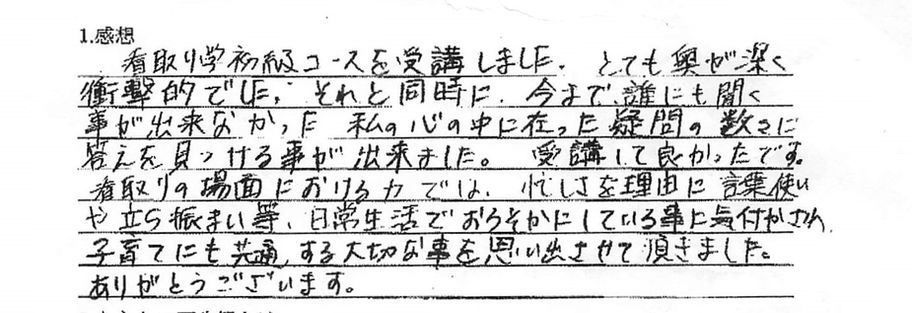 1.感想
看取り学初級コースを受講しました。とても奥が深く
衝撃的でした。それと同時に、今まで、誰にも聞く
事が出来なかった 私の心の中に在った疑問の数々に
答えを見つける事が出来ました。受講して良かったです。
看取りの場面における力では、忙しさを理由に言葉使い
や立ち振まい等、日常生活でおろそかにしている事に気付かされ、
子育てにも共通する大切な事を思い出させて頂きました。
ありがとうございます。